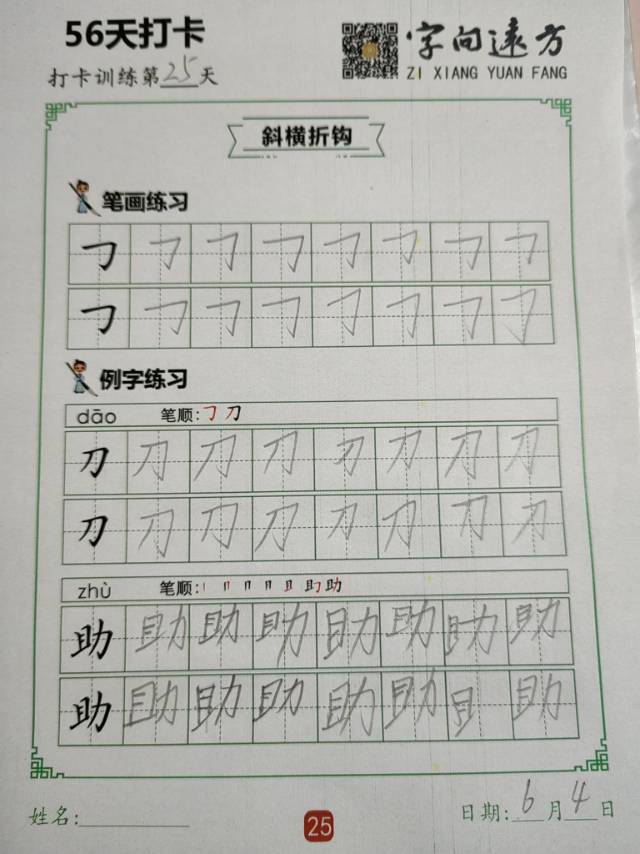 56天打卡
字向远方
打卡训练第25天
ZI XIANG YUAN FANG
斜横折钩
笔画练习
㇆ ㇆ ㇆ ㇆ ㇆ ㇆ ㇆ ㇆
㇆ ㇆ ㇆ ㇆ ㇆ ㇆ ㇆ ㇆
例字练习
dāo 笔顺:㇆ 刀
刀 刀 刀 刀 刀 刀 刀 刀
刀 刀 刀 刀 刀 刀 刀 刀
zhù 笔顺:丨 冂 月 月 且 助 助
助 助 助 助 助 助 助 助
助 助 助 助 助 助 且 助
姓名:
25
日期: 6月4日